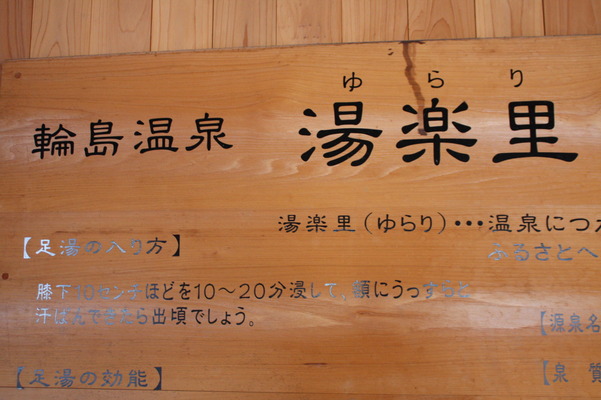 ゆらり
輪島温泉 湯楽里
湯楽里（ゆらり）･･･温泉につか
ふるさとへ
【足湯の入り方】
膝下10センチほどを10〜20分浸して、額にうっすらと
汗ばんできたら出頃でしょう。
【源泉名
【足湯の効能】
【泉 質